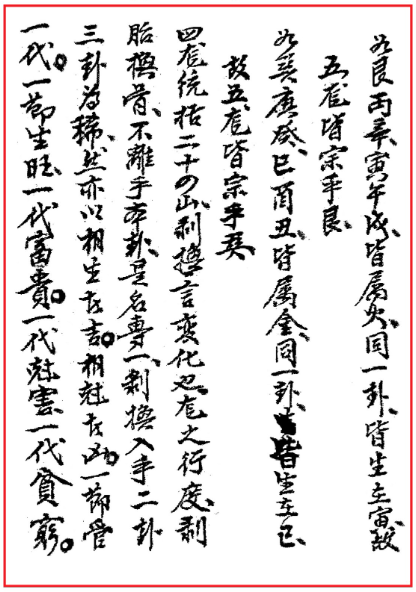 如艮丙辛、寅午戌、皆属火、同一卦、皆生在寅、故
五龙皆宗乎艮、
如巽庚癸、巳酉丑、皆属金、同一卦、皆生在巳、
故五龙皆宗乎巽
四龙统括二十四山、剥换言变化也、龙之行度、剥
胎换骨、不离乎本卦、是名专一、剥换入乎二卦
三卦为稀、然亦以相生者吉。相尅者凶、一节管
一代。一节生旺、一代富贵。一代尅害、一代贫穷。